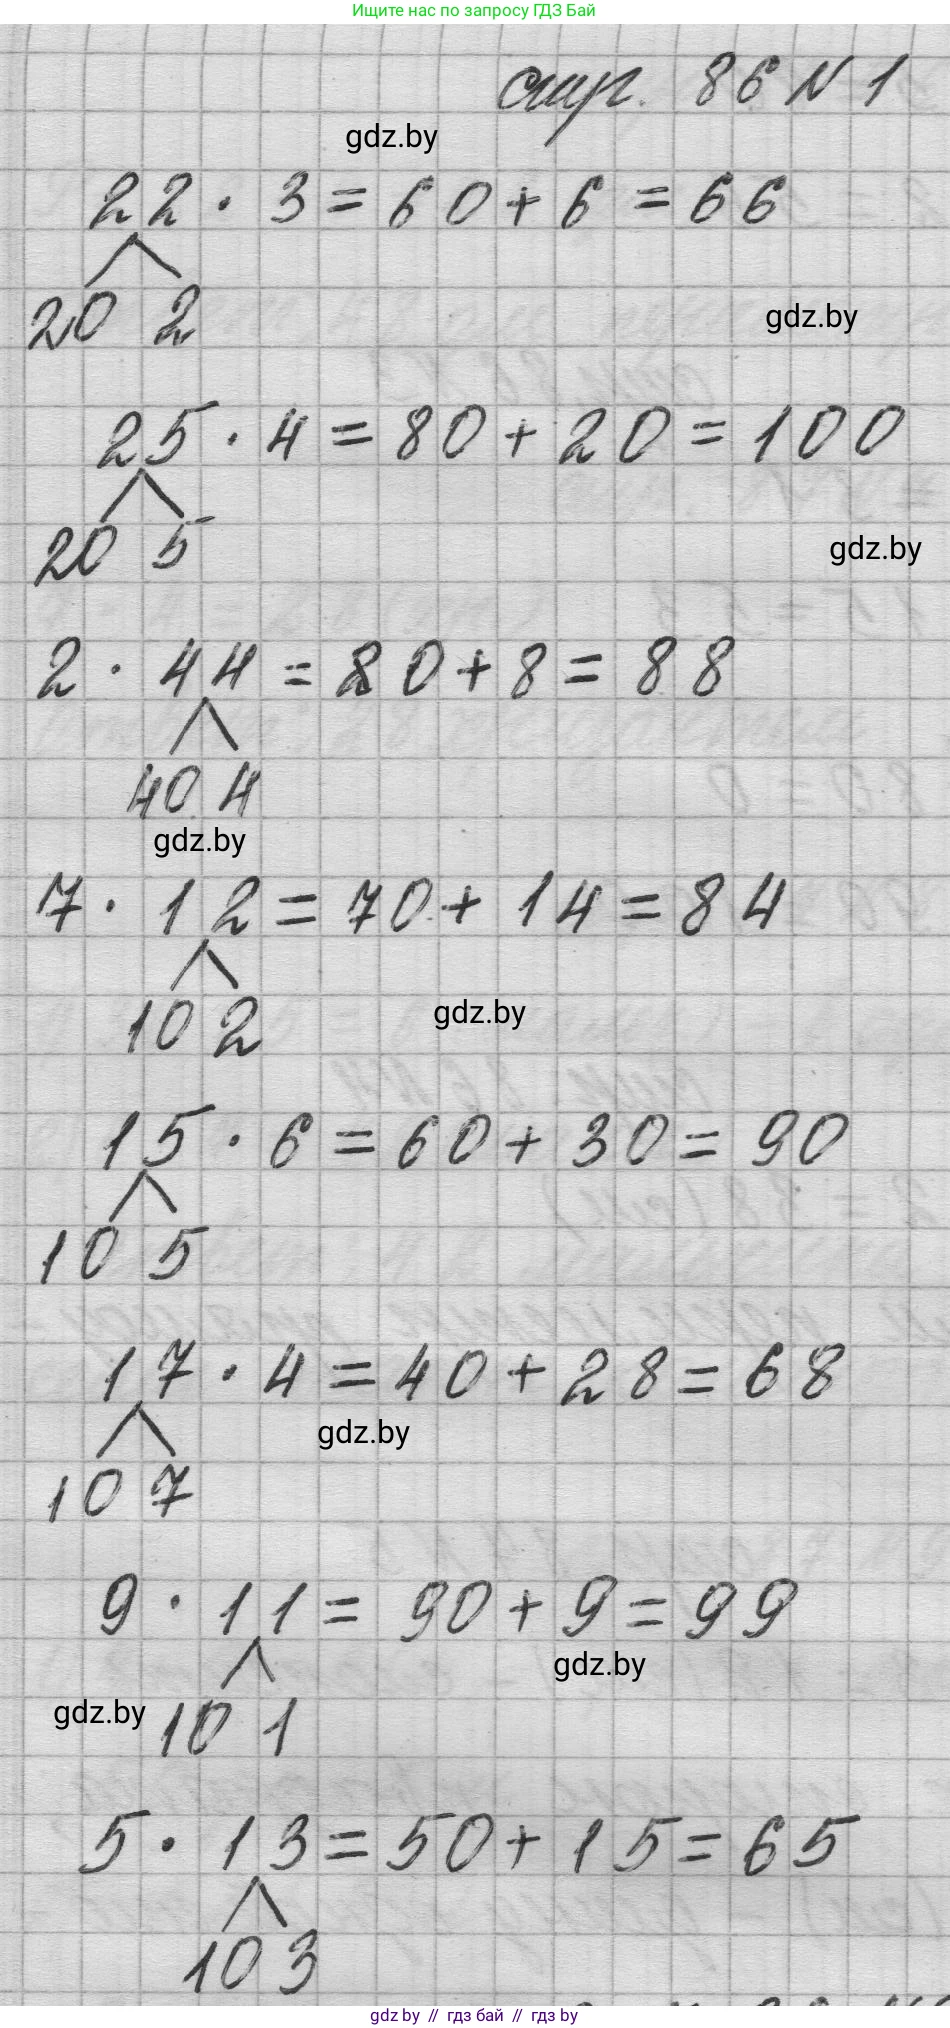 Ищите нас по запросу ГДЗ Бай
стр. 86 N 1
gdz.by
22 · 3 = 60 + 6 = 66
20 2
gdz.by
25 · 4 = 80 + 20 = 100
20 5
gdz.by
2 · 44 = 80 + 8 = 88
40 4
gdz.by
7 · 12 = 70 + 14 = 84
10 2
gdz.by
15 · 6 = 60 + 30 = 90
10 5
17 · 4 = 40 + 28 = 68
gdz.by
10 7
9 · 11 = 90 + 9 = 99
gdz.by
gdz.by
10 1
5 · 13 = 50 + 15 = 65
10 3
gdz.by // гдз бай // гдз by